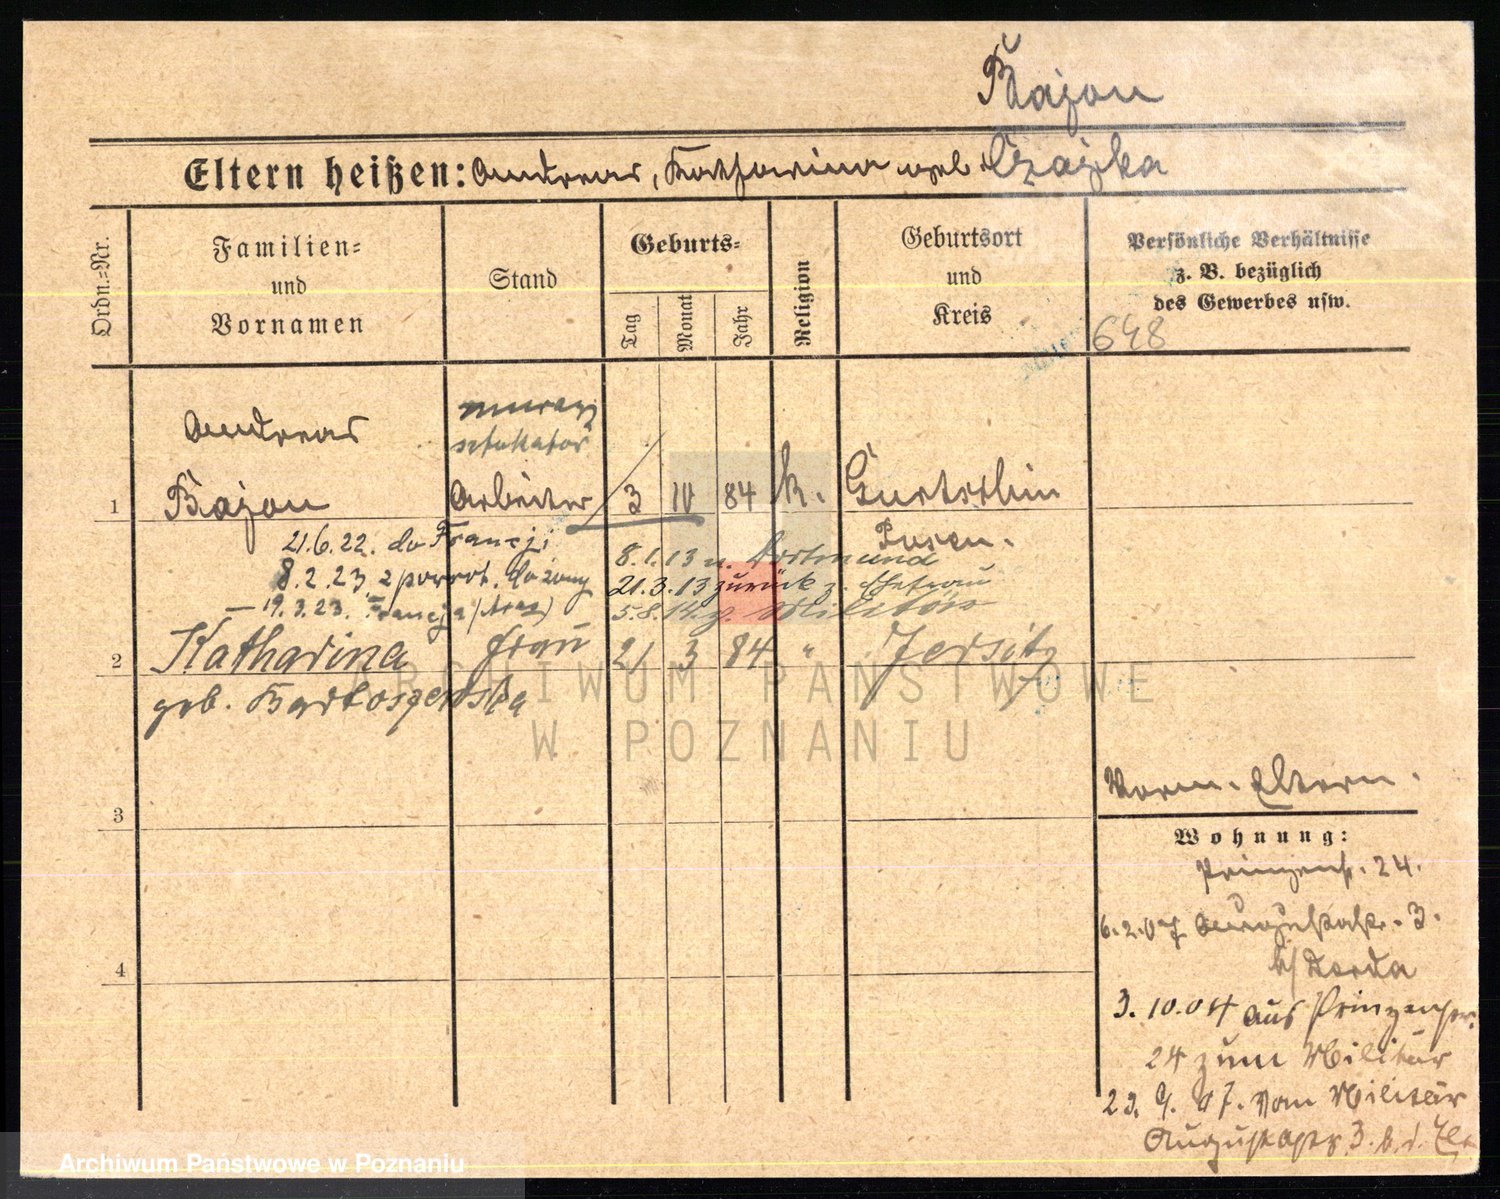 Bajon
Eltern heißen: Andreas, Katharina geb. Czajka
Ordn.-Nr.
Familien-
und
Vornamen
Stand
Geburts-
Tag
Monat
Jahr
Religion
Geburtsort
und
Kreis
Persönliche Verhältnisse
z. B. bezüglich
des Gewerbes usw.
648
Andreas
sztukator
1 Bajon Arbeiter 3 10 84 k. Gurtschin
Posen.
21.6.22. do Francji
8.2.23. z powrot. do żony
19.3.23. Francja
8.1.13 n. Dortmund
21.3.13 zurück z. Ehefrau
5.8.14. z. Militär
2 Katharina Frau 21 3 84 " Jersitz
geb.
3
4
Vorm. Eltern.
Wohnung:
Prinzenstr. 24.
6.2.07 Augustastr. 3.
b/
3.10.04 aus Prinzenstr.
24 zum Militär
23.9.07. vom Militär
Augustastr. 3. b. d. Elt.
ARCHIWUM PAŃSTWOWE
W POZNANIU
Archiwum Państwowe w Poznaniu